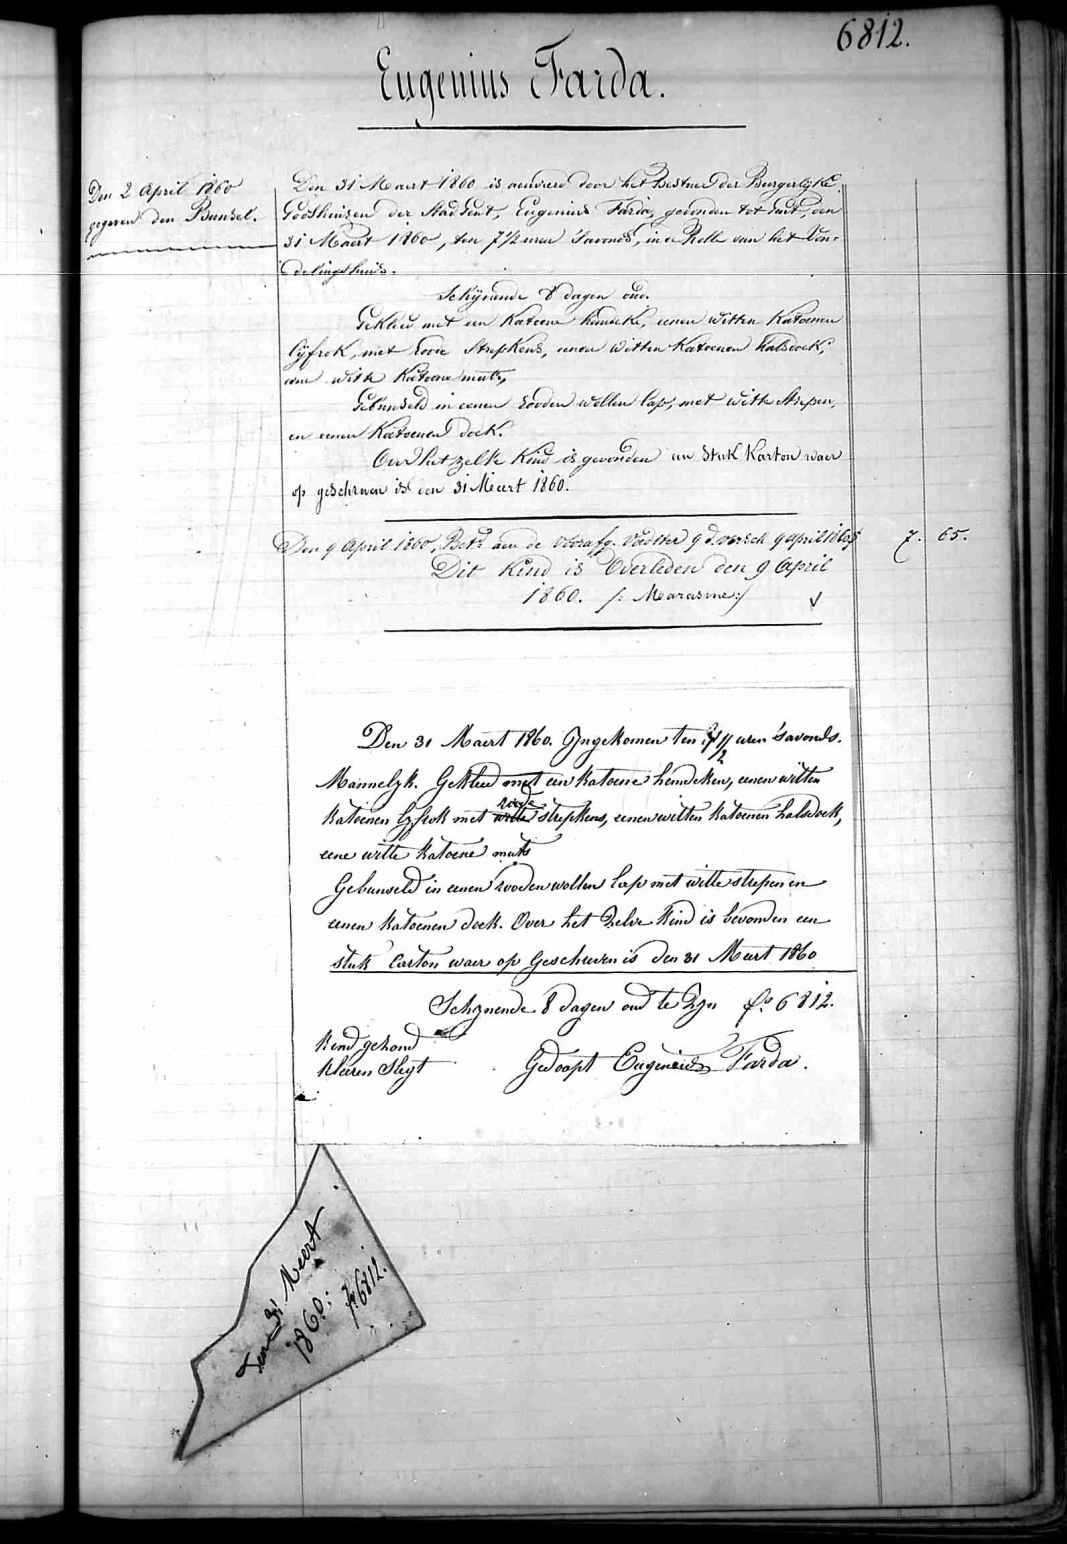 6812.
Eugenius Farda.
Den 2 April 1860
gegeven den Bunsel.
Den 31 Maert 1860 is aenveerd door het Bestuer der Burgerlyke
Godshuizen der Stad Gent, Eugenius Farda, gevonden tot Gent, den
31 Maert 1860, ten 7 1/2 uren 'savonds, in de Rolle van het Von-
delingshuis.
Schynende 8 dagen oud.
Gekleed met een Katoene hemdeke, eenen witten Katoenen
lyfrok, met roode Strepkens, eenen witten Katoenen halsdoek,
eene witte Katoene muts,
Gebunseld in eenen rooden wollen lap, met witte strepen,
en eenen Katoenen doek.
Over het zelve Kind is gevonden een Stuk Karton waer
op geschreven is den 31 Meert 1860.
Den 9 April 1860, Bet. aen de voorafg. Voedster 9 d. versch. 9 april 1860 7. 65.
Dit Kind is Overleden den 9 April
1860. /: Marasme:/
Den 31 Maert 1860. Ingekomen ten 7 1/2 uren 'savonds.
Mannelyk. Gekleed met een katoene hemdeken, eenen witten
roode
katoenen lyfrok met witte strepkens, eenen witten katoenen halsdoek,
eene witte katoene muts
Gebunseld in eenen rooden wollen lap met witte strepen en
eenen katoenen doek. Over het zelve kind is bevonden een
stuk Carton waer op Geschreven is den 31 Meert 1860
Schynende 8 dagen oud te zyn f.° 6812.
Kind gezond
kleeren Slegt
Gedoopt Eugenius Farda.
den 31 Meert
1860: f° 6812.